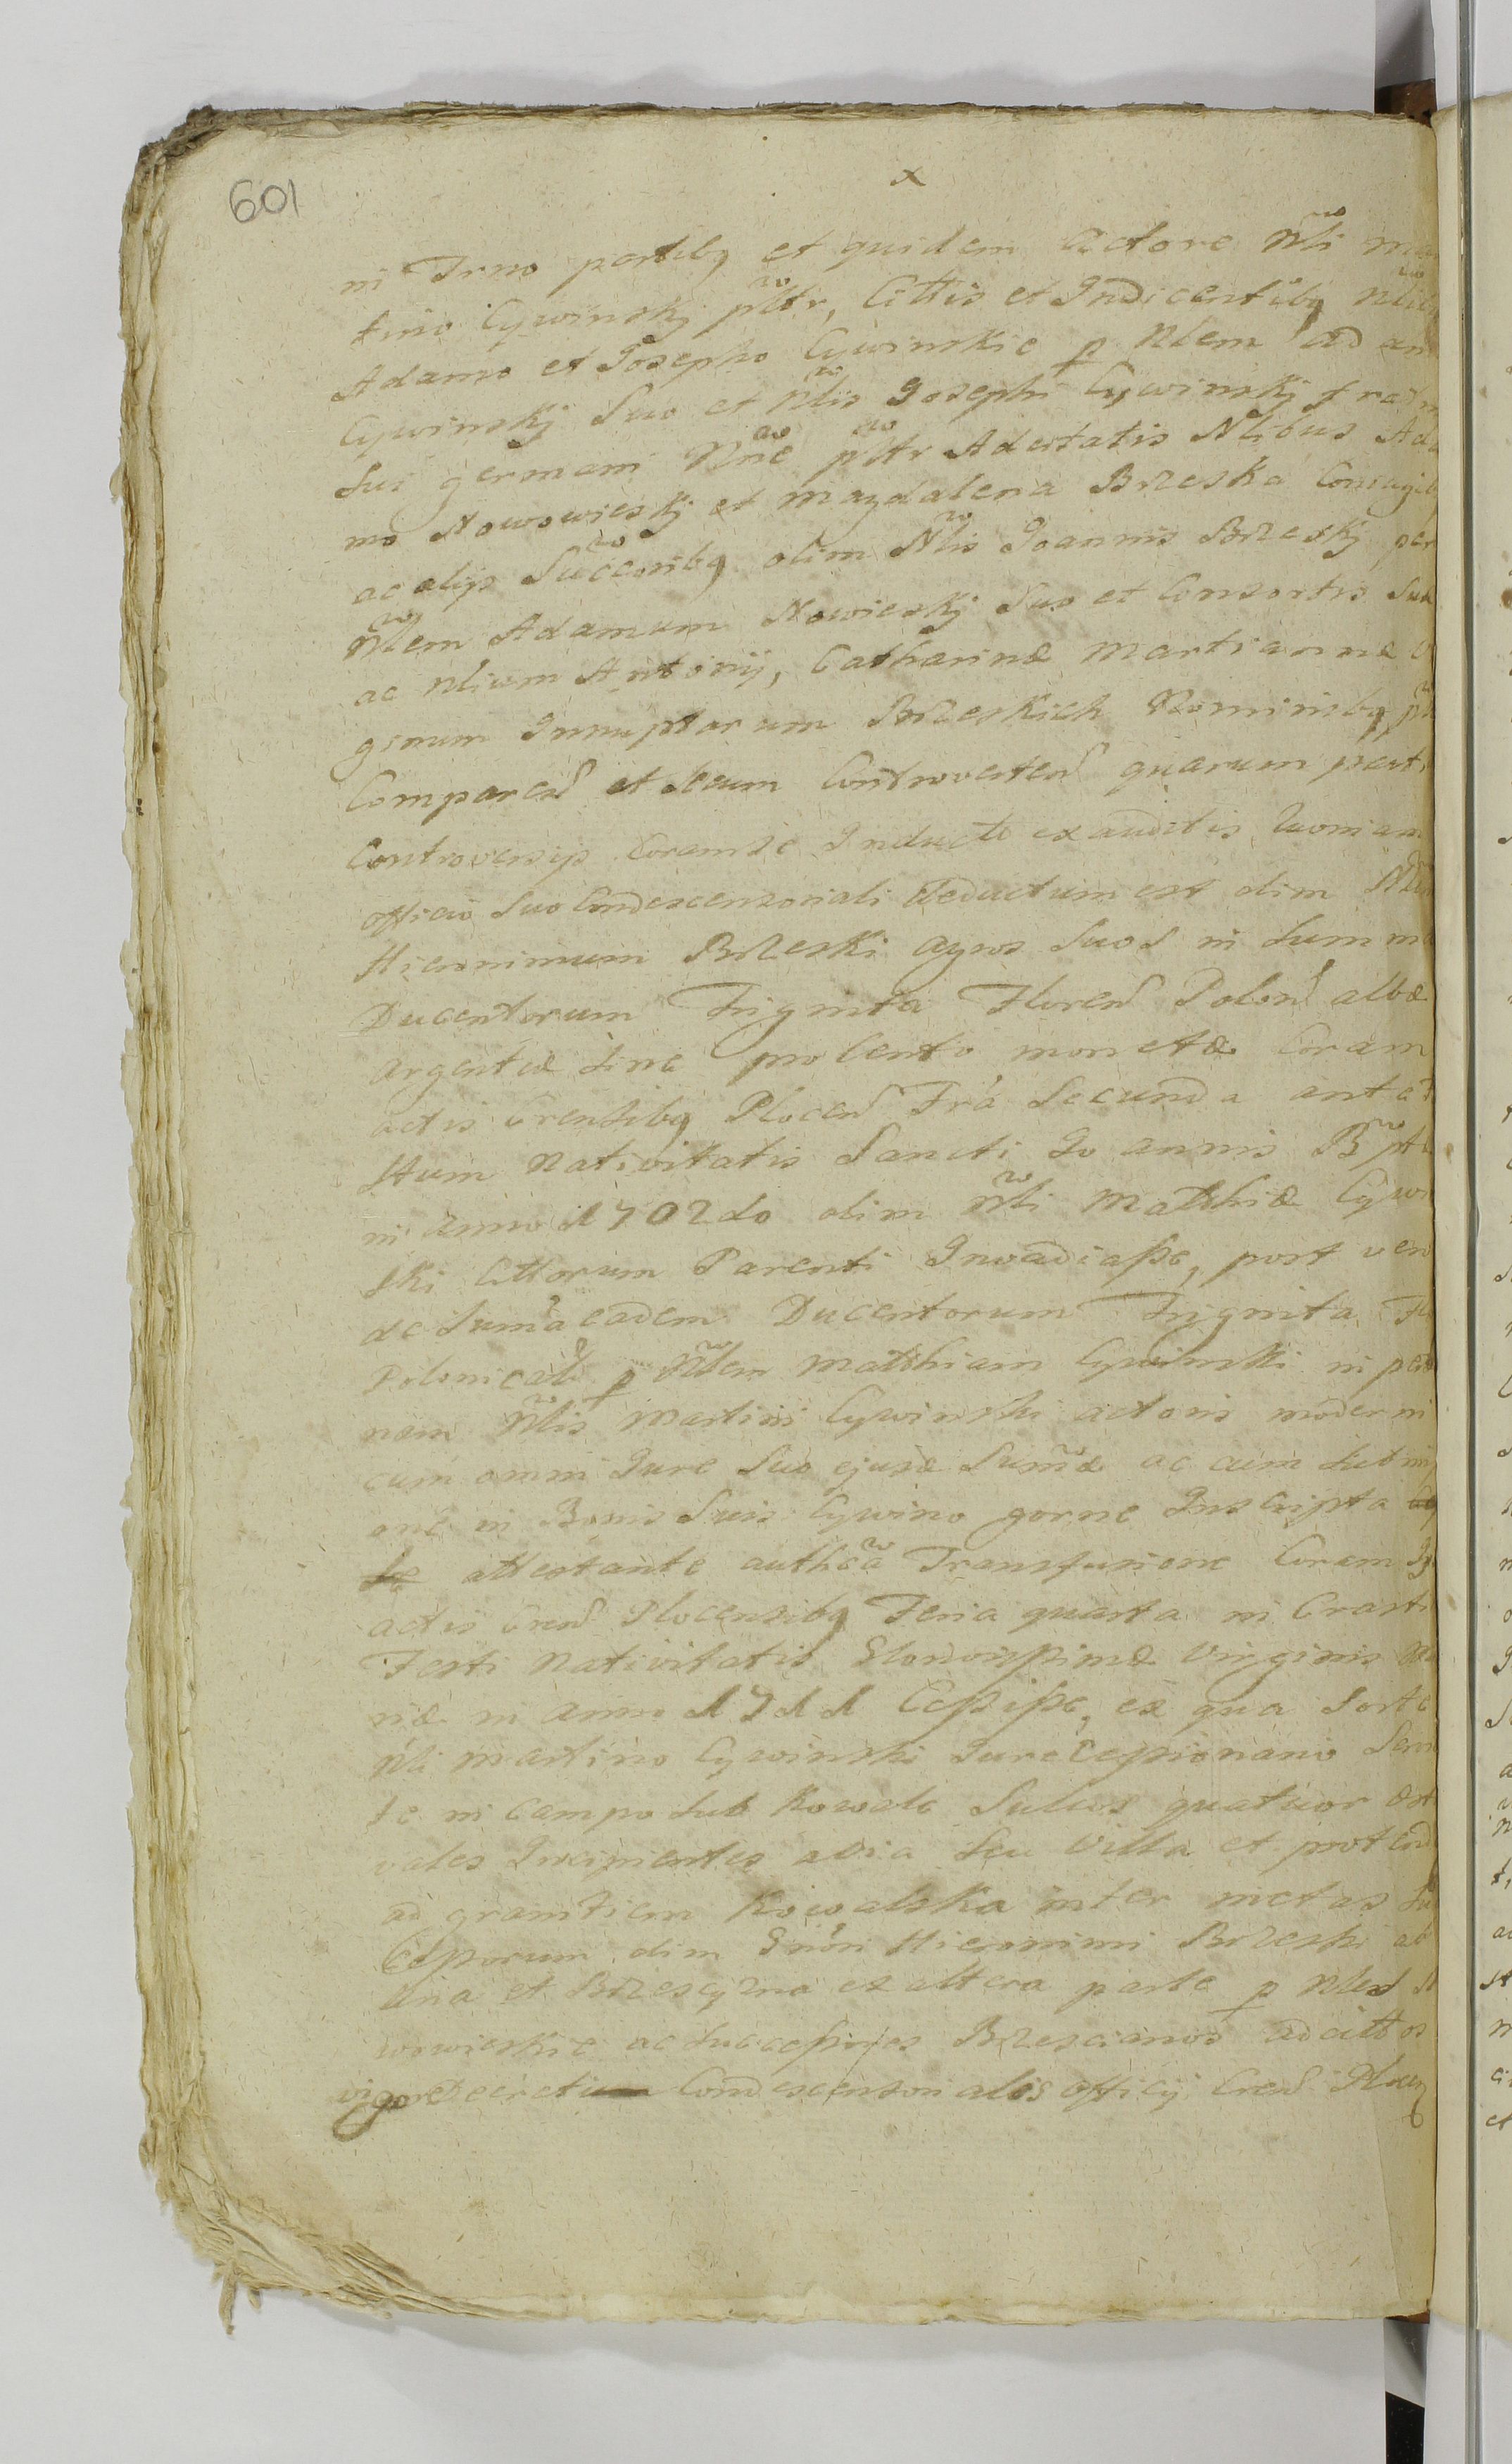 601
x
in Trno partibq et quidem Actore Nli Mar
tino Cywinskj pltr, Cittis et Indicentibq Nlib
Adamo et Josepho Cywinskie p Nlem Adam
Cywinskj Suo et Nlis Josephi Cywinskj fratris
Sui germani Nne pltr Adcitatis Nlibus Ada
mo Nowowieskj et Magdalena Brzeska Conjugibq
ac alijs Succoribq olim Nlis Joannis Brzeskj per
Nlem Adamum Nowieskj Suo et Consortis Suæ
ac Nlium Antonij, Catharinæ Martiannæ
ginum Innuptarum Brzeskich Nominibq
Comparen et Secum Controverten quarum parti
Controversijs Coram se Inducte exauditis, Quoniam
officio Suo Condescensoriali deductum est olim Nlem
Hieronimum Brzeski agros Suos in Summa
Ducentorum Triginta Floren Polon albæ
argenteæ Sine procento monetæ Coram
actis Crensibq Plocen Fria Secunda ante
stum Nativitatis Sancti Joannis Bapt
in anno 1702do olim Nli Mathiæ Cywin
ski Cittorum Parenti Invadiasse, post vero
de Suma eadem Ducentorum Triginta Fl
Polonical p Nlem Mathiam Cywinski in perso
nam Nlis Martini Cywinski actoris moderni
cum omni Jure Suo ejusd Summæ ac cum Submi
one in Bonis Suis Cywino gorne Inscripta
attestante authca Transfusione Coram
actis Cren Plocensibq Feria quarta in Crasti
Festi Nativitatis Gloriosissimæ Virginis Ma
riæ in anno 1711 Cessisse, ex qua Sorte
Nli Martino Cywinski Jure Cessionario Servi
te in campo Sub Kowale Sulcos quatuor æst
vales Incipientes a via Seu Villa et proten
ad granitiem Kowalska inter metas
Cessorum olim Gnosi Hieronimi Brzeski ab
una et Brzescyzna ex altera parte p Nles
wowieskie ac Successores Brzescianos adcittos
vigore Decreti Condescensorialis officij Cren Plocen